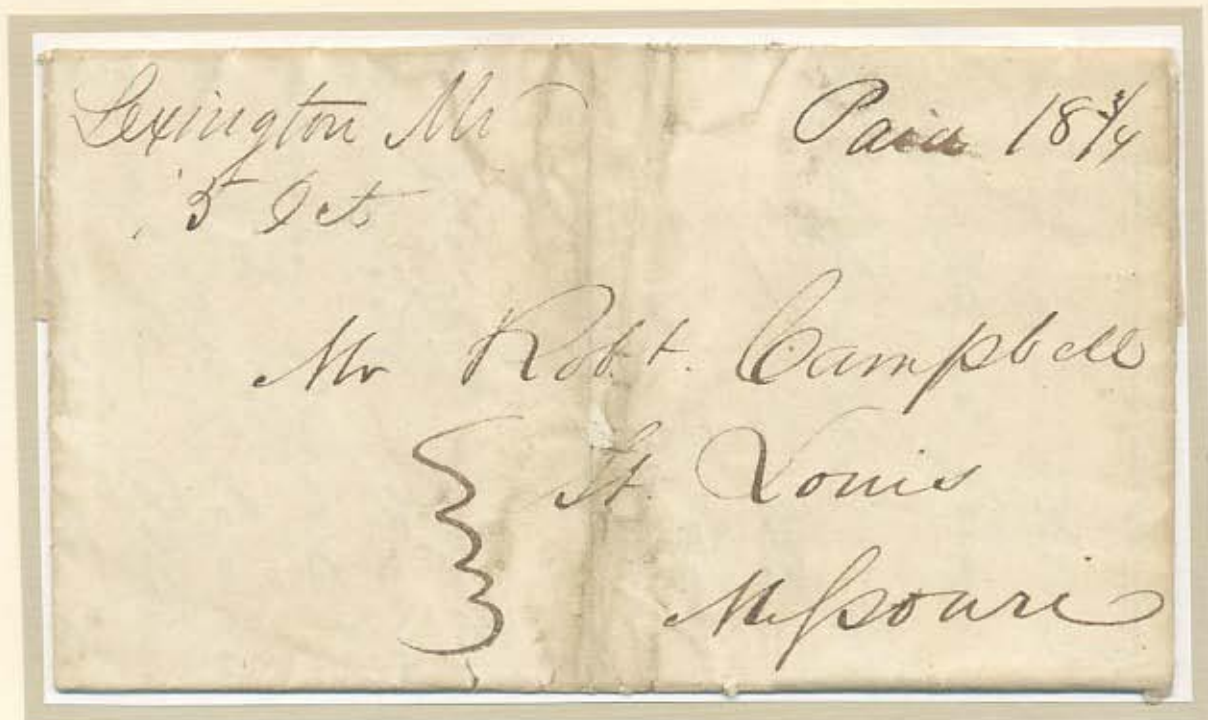 Lexington Mi
5 Oct
Paid 18 3/4
Mr Robt. Campbell
St. Louis
Missouri